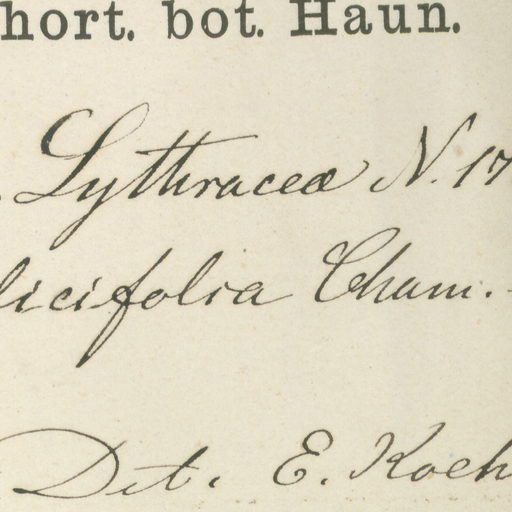 hort. bot. Haun.
Lythraceæ N. 17
licifolia Cham.-
Det. E. Koeh